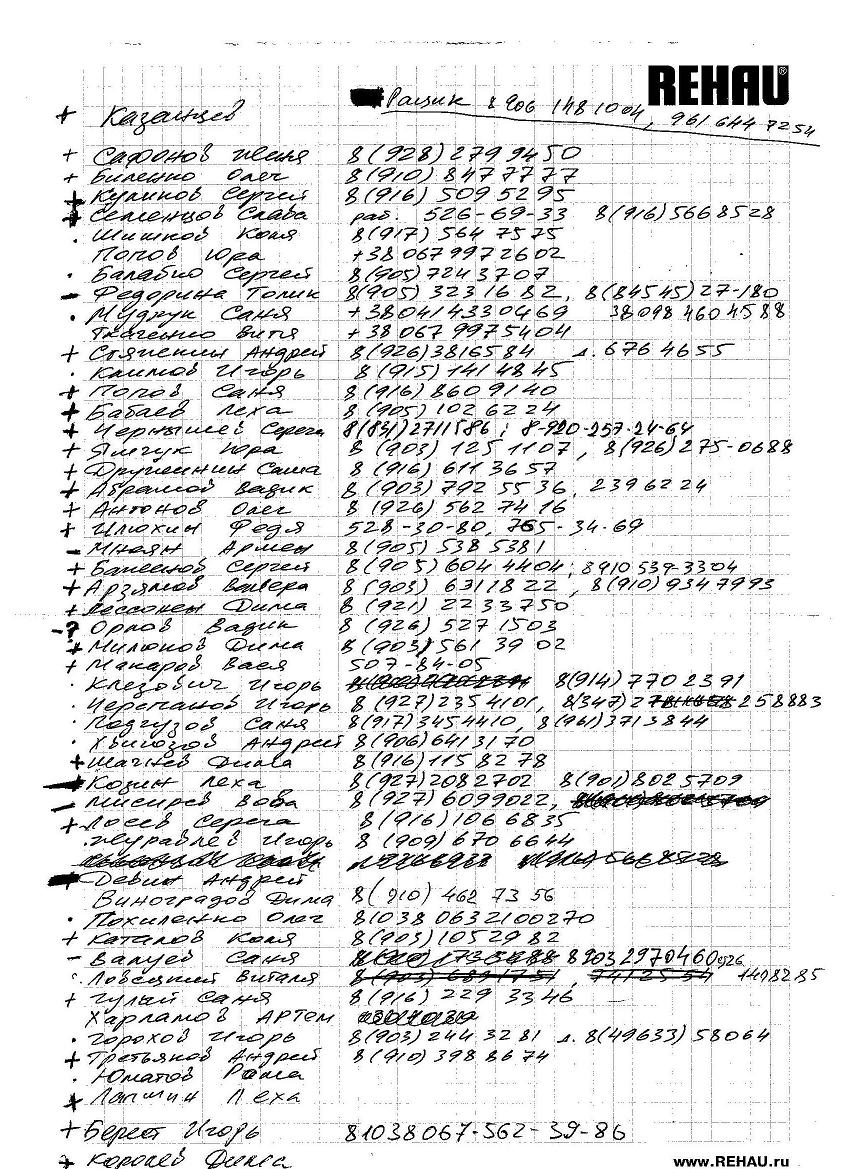 REHAU®
Ращик 8 906 148 1004, 961 644 7254
+ Казанцев
+ Сафонов Женя 8(928) 279 94 50
+ Биленко Олег 8(910) 847 77 77
+ Куликов Сергей 8(916) 509 52 95
+ Семенцов Слава раб. 526-69-33 8(916)566 85 28
. Шишков Коля 8(917) 564 75 75
Попов Юра +38 067 997 26 02
. Балабко Сергей 8(905)724 37 07
- Федорина Толик 8(905) 323 16 82, 8(84545)27-180
. Мудрук Саня +38041433 04 69 38 098 460 45 88
Ткаченко Витя +38 067 997 54 04
+ Стяпении Андрей 8(926)381 65 84 д. 676 46 55
. Климов Игорь 8(915) 141 48 45
+ Попов Саня 8(916) 860 91 40
+ Бабаев Леха 8(905) 102 62 24
+ Чернышев Серега 8(841)2711586; 8-920-257-24-64
+ Ямчук Юра 8(903) 125 11 07, 8(926)275-0688
+ Дружинин Саша 8(916) 611 36 57
+ Абрамов Вадик 8(903) 792 55 36, 239 62 24
+ Антонов Олег 8(926) 562 74 16
+ Илюхин Федя 528-30-80, 765-34-69
- Мнеян Армен 8(905) 538 5381
+ Сергей 8(905) 604 4404, 8910 539-3304
+ Арзямов Валера 8(903) 631 18 22, 8(910) 934 79 93
+ Лессонен Дима 8(921) 22 33 750
-? Орлов Вадик 8(926) 527 1503
+ Милюков Дима 8(903) 561 39 02
+ Макаров Вася 507-84-05
. Клезович Игорь 8(914) 770 23 91
. Черепанов Игорь 8(927)235 4101, 8(347)2 258883
. Подгузов Саня 8(917)345 4410, 8(961)371 38 44
. Андрей 8(906)641 31 70
+ Шачнев Дима 8(916)115 82 78
Козин Леха 8(927)208 2702 8(901)802 5709
- Мисирев Вова 8(927)609 9022,
+ Лосев Серега 8(916)106 6835
. Журавлев Игорь 8(909) 670 66 44
Девин Андрей
Виноградов Дима 8(910) 462 73 56
. Похиленко Олег 81038 0632100270
+ Каталов Коля 8(903)105 29 82
- Валуев Саня 8903 2970460
. Ловецкий Виталя 1498285
+ Гулый Саня 8(916) 229 33 46
Харламов АРТЕМ
. Горохов Игорь 8(903) 244 32 81 д. 8(49633) 58064
+ Третьяков Андрей 8(910) 398 86 74
. Юматов Рома
+ Лапшин Леха
+ Берест Игорь 81038067-562-39-86
+ Королев Дима
www.REHAU.ru